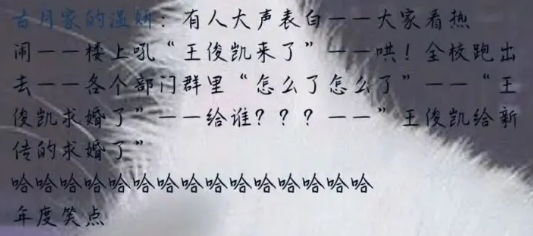 古月家的温妍：有人大声表白——大家看热
闹——楼上吼“王俊凯来了”——哄！全校跑出
去——各个部门群里“怎么了怎么了”——“王
俊凯求婚了”——给谁？？？——”王俊凯给新
传的求婚了”
哈哈哈哈哈哈哈哈哈哈哈哈哈哈哈
年度笑点